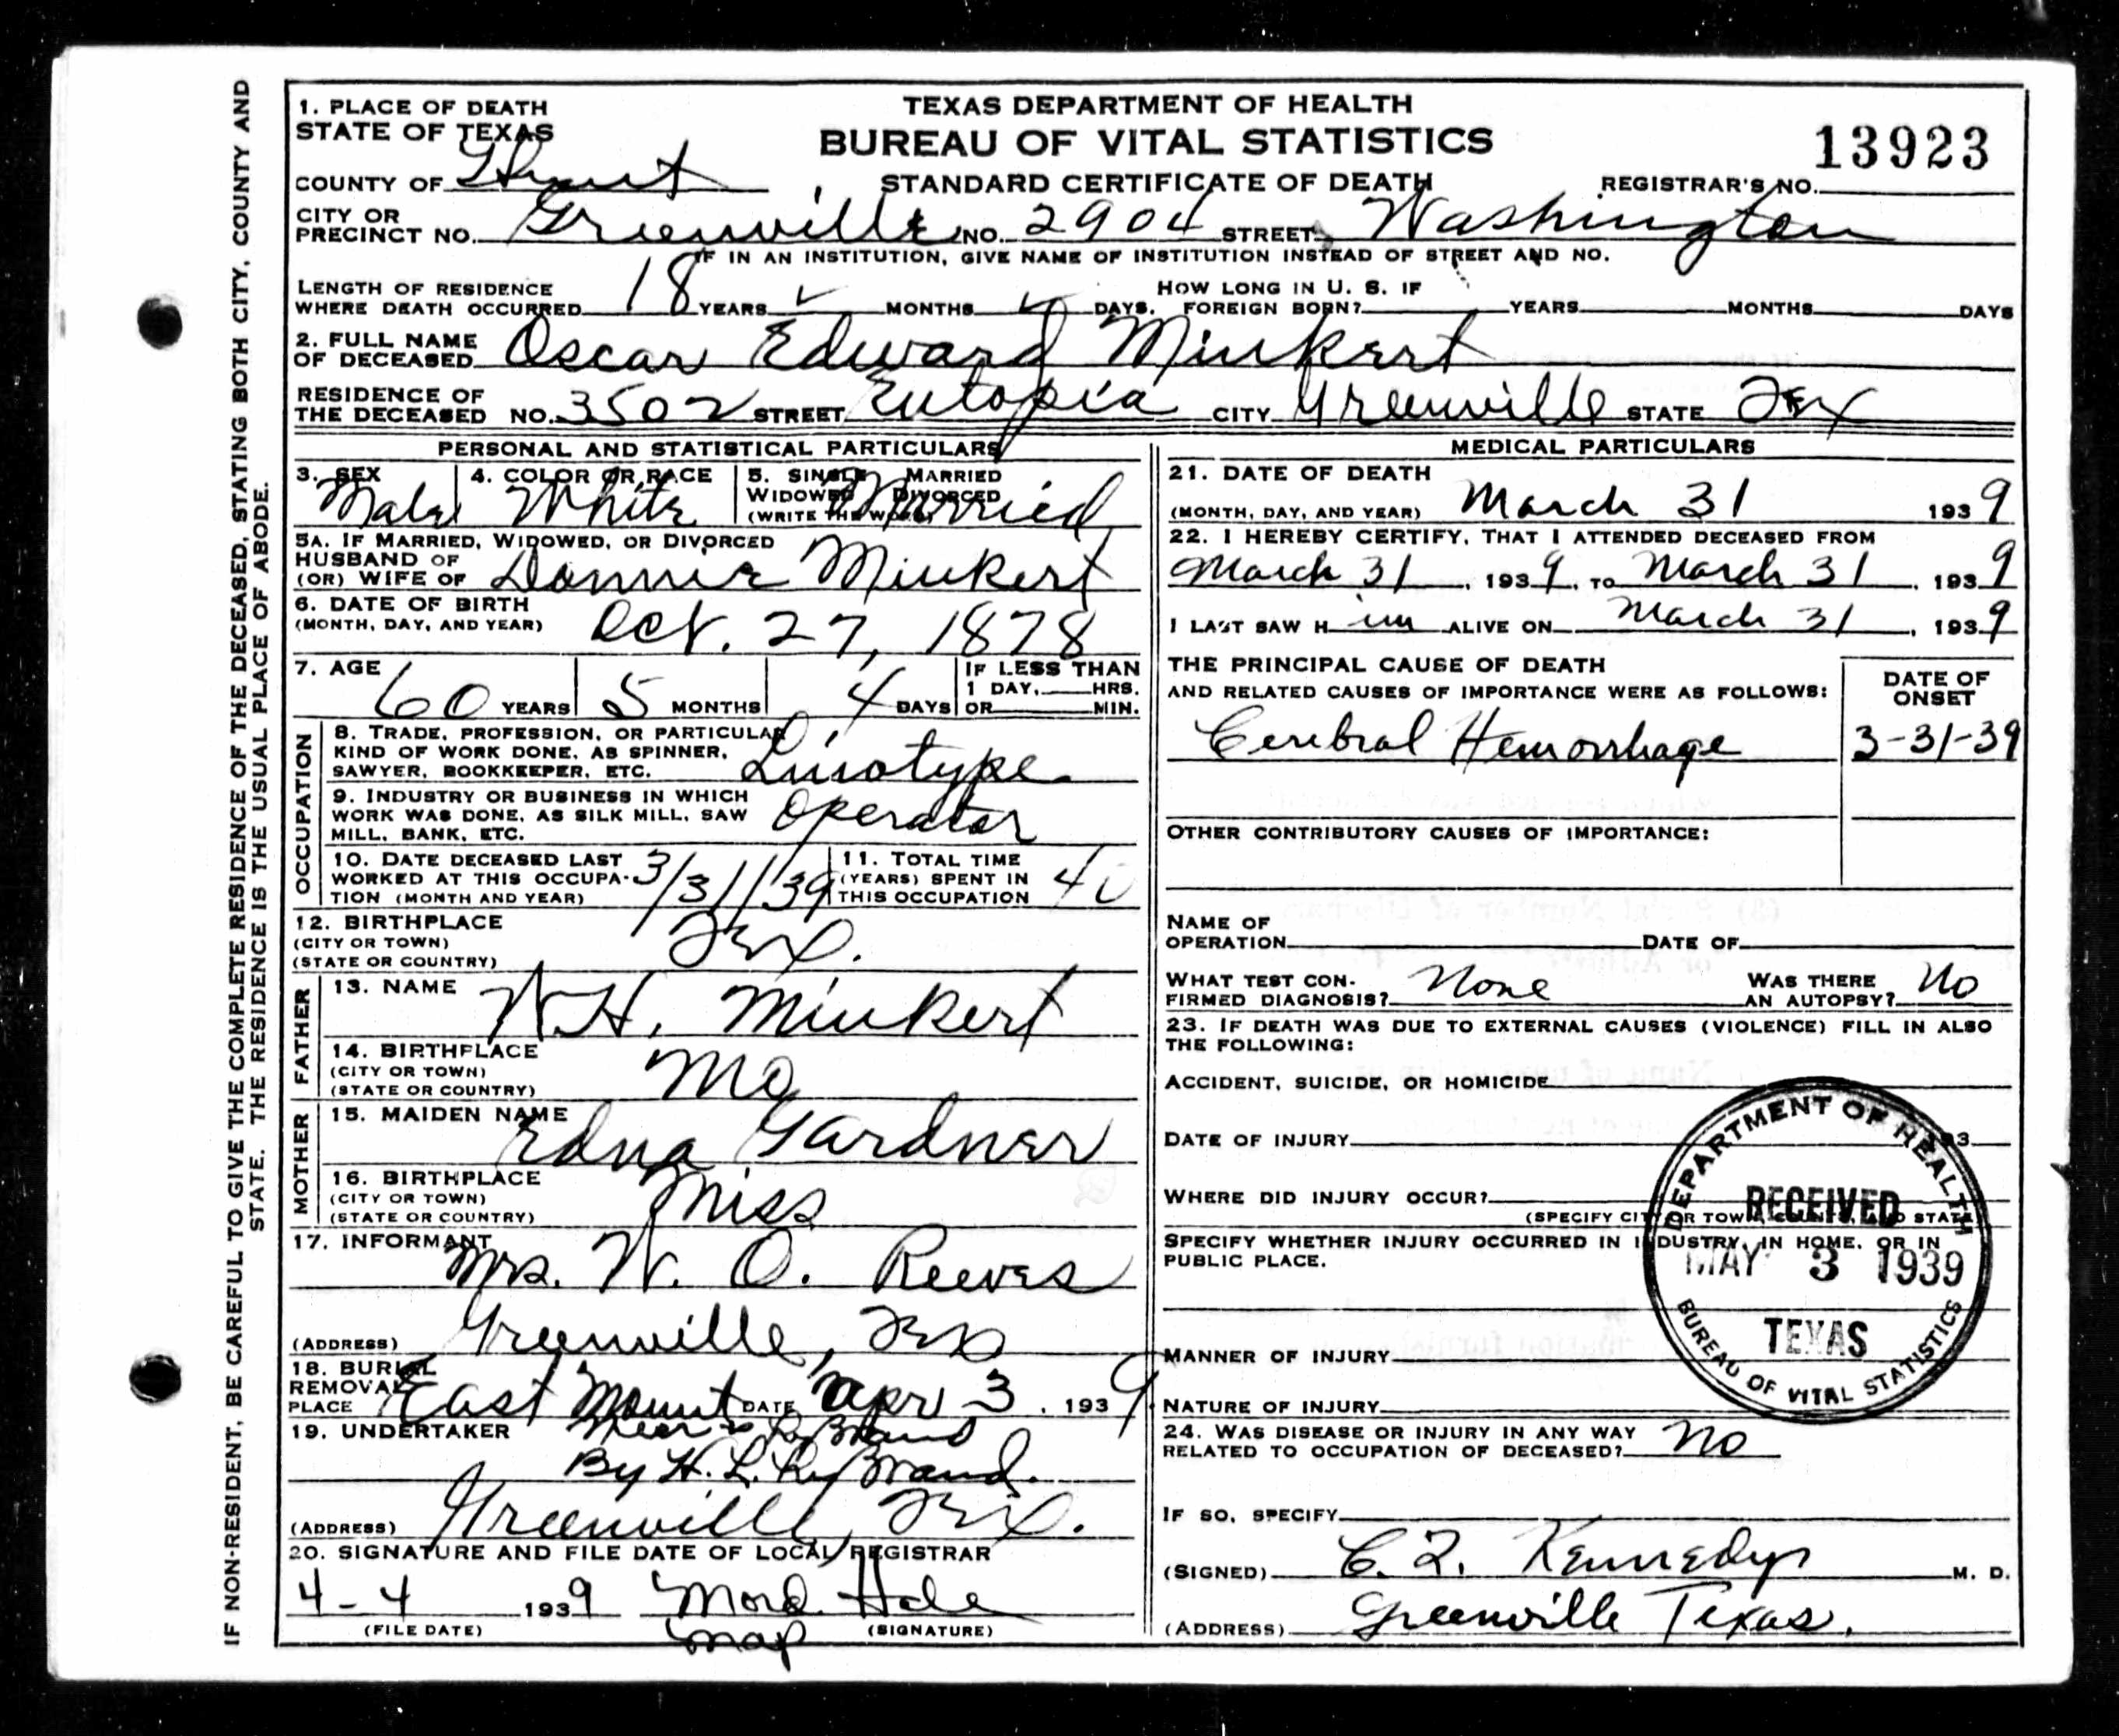 IF NON-RESIDENT, BE CAREFUL TO GIVE THE COMPLETE RESIDENCE OF THE DECEASED, STATING BOTH CITY, COUNTY AND
STATE. THE RESIDENCE IS THE USUAL PLACE OF ABODE.
1. PLACE OF DEATH
STATE OF TEXAS
TEXAS DEPARTMENT OF HEALTH
BUREAU OF VITAL STATISTICS
13923
COUNTY OF Hunt
STANDARD CERTIFICATE OF DEATH
REGISTRAR'S NO.
CITY OR PRECINCT NO. Greenville NO. 2904 STREET Washington
IF IN AN INSTITUTION, GIVE NAME OF INSTITUTION INSTEAD OF STREET AND NO.
LENGTH OF RESIDENCE
WHERE DEATH OCCURRED 18 YEARS MONTHS DAYS.
HOW LONG IN U. S. IF
FOREIGN BORN? YEARS MONTHS DAYS
2. FULL NAME
OF DECEASED Oscar Edward Minkert
RESIDENCE OF
THE DECEASED NO. 3502 STREET Eutopia CITY Greenville STATE Tex
PERSONAL AND STATISTICAL PARTICULARS
3. SEX
Male
4. COLOR OR RACE
White
5. SINGLE MARRIED
WIDOWED DIVORCED
(WRITE THE WORD)
Married
5A. IF MARRIED, WIDOWED, OR DIVORCED
HUSBAND OF
(OR) WIFE OF Donnie Minkert
6. DATE OF BIRTH
(MONTH, DAY, AND YEAR) Oct. 27, 1878
7. AGE
60 YEARS 5 MONTHS 4 DAYS
IF LESS THAN
1 DAY, HRS.
OR MIN.
OCCUPATION
8. TRADE, PROFESSION, OR PARTICULAR
KIND OF WORK DONE, AS SPINNER,
SAWYER, BOOKKEEPER, ETC. Linotype
9. INDUSTRY OR BUSINESS IN WHICH
WORK WAS DONE, AS SILK MILL, SAW
MILL, BANK, ETC. Operator
10. DATE DECEASED LAST
WORKED AT THIS OCCUPA-
TION (MONTH AND YEAR) 3/31/39
11. TOTAL TIME
(YEARS) SPENT IN
THIS OCCUPATION 40
12. BIRTHPLACE
(CITY OR TOWN)
(STATE OR COUNTRY) Tex.
FATHER
13. NAME W.H. Minkert
14. BIRTHPLACE
(CITY OR TOWN)
(STATE OR COUNTRY) Mo
MOTHER
15. MAIDEN NAME Edna Gardner
16. BIRTHPLACE
(CITY OR TOWN)
(STATE OR COUNTRY) Miss
17. INFORMANT Mrs. W. O. Reeves
(ADDRESS) Greenville, Tex
18. BURIAL
REMOVAL
PLACE East Mount DATE Apr 3, 1939
19. UNDERTAKER
By H. L. RyBrand.
(ADDRESS) Greenville, Tex.
20. SIGNATURE AND FILE DATE OF LOCAL REGISTRAR
4-4 1939
(FILE DATE) (SIGNATURE)
MEDICAL PARTICULARS
21. DATE OF DEATH
(MONTH, DAY, AND YEAR) March 31 1939
22. I HEREBY CERTIFY, THAT I ATTENDED DECEASED FROM
March 31, 1939, TO March 31, 1939
I LAST SAW Him ALIVE ON March 31, 1939
THE PRINCIPAL CAUSE OF DEATH
AND RELATED CAUSES OF IMPORTANCE WERE AS FOLLOWS:
DATE OF
ONSET
Cerebral Hemorrhage 3-31-39
OTHER CONTRIBUTORY CAUSES OF IMPORTANCE:
NAME OF
OPERATION DATE OF
WHAT TEST CON-
FIRMED DIAGNOSIS? None
WAS THERE
AN AUTOPSY? No
23. IF DEATH WAS DUE TO EXTERNAL CAUSES (VIOLENCE) FILL IN ALSO
THE FOLLOWING:
ACCIDENT, SUICIDE, OR HOMICIDE
DATE OF INJURY 193
WHERE DID INJURY OCCUR?
(SPECIFY CITY OR TOWN, COUNTY, AND STATE)
SPECIFY WHETHER INJURY OCCURRED IN INDUSTRY, IN HOME, OR IN
PUBLIC PLACE.
DEPARTMENT OF HEALTH
RECEIVED
MAY 3 1939
TEXAS
BUREAU OF VITAL STATISTICS
MANNER OF INJURY
NATURE OF INJURY
24. WAS DISEASE OR INJURY IN ANY WAY
RELATED TO OCCUPATION OF DECEASED? No
IF SO, SPECIFY
(SIGNED) Kennedy M. D.
(ADDRESS) Greenville Texas.